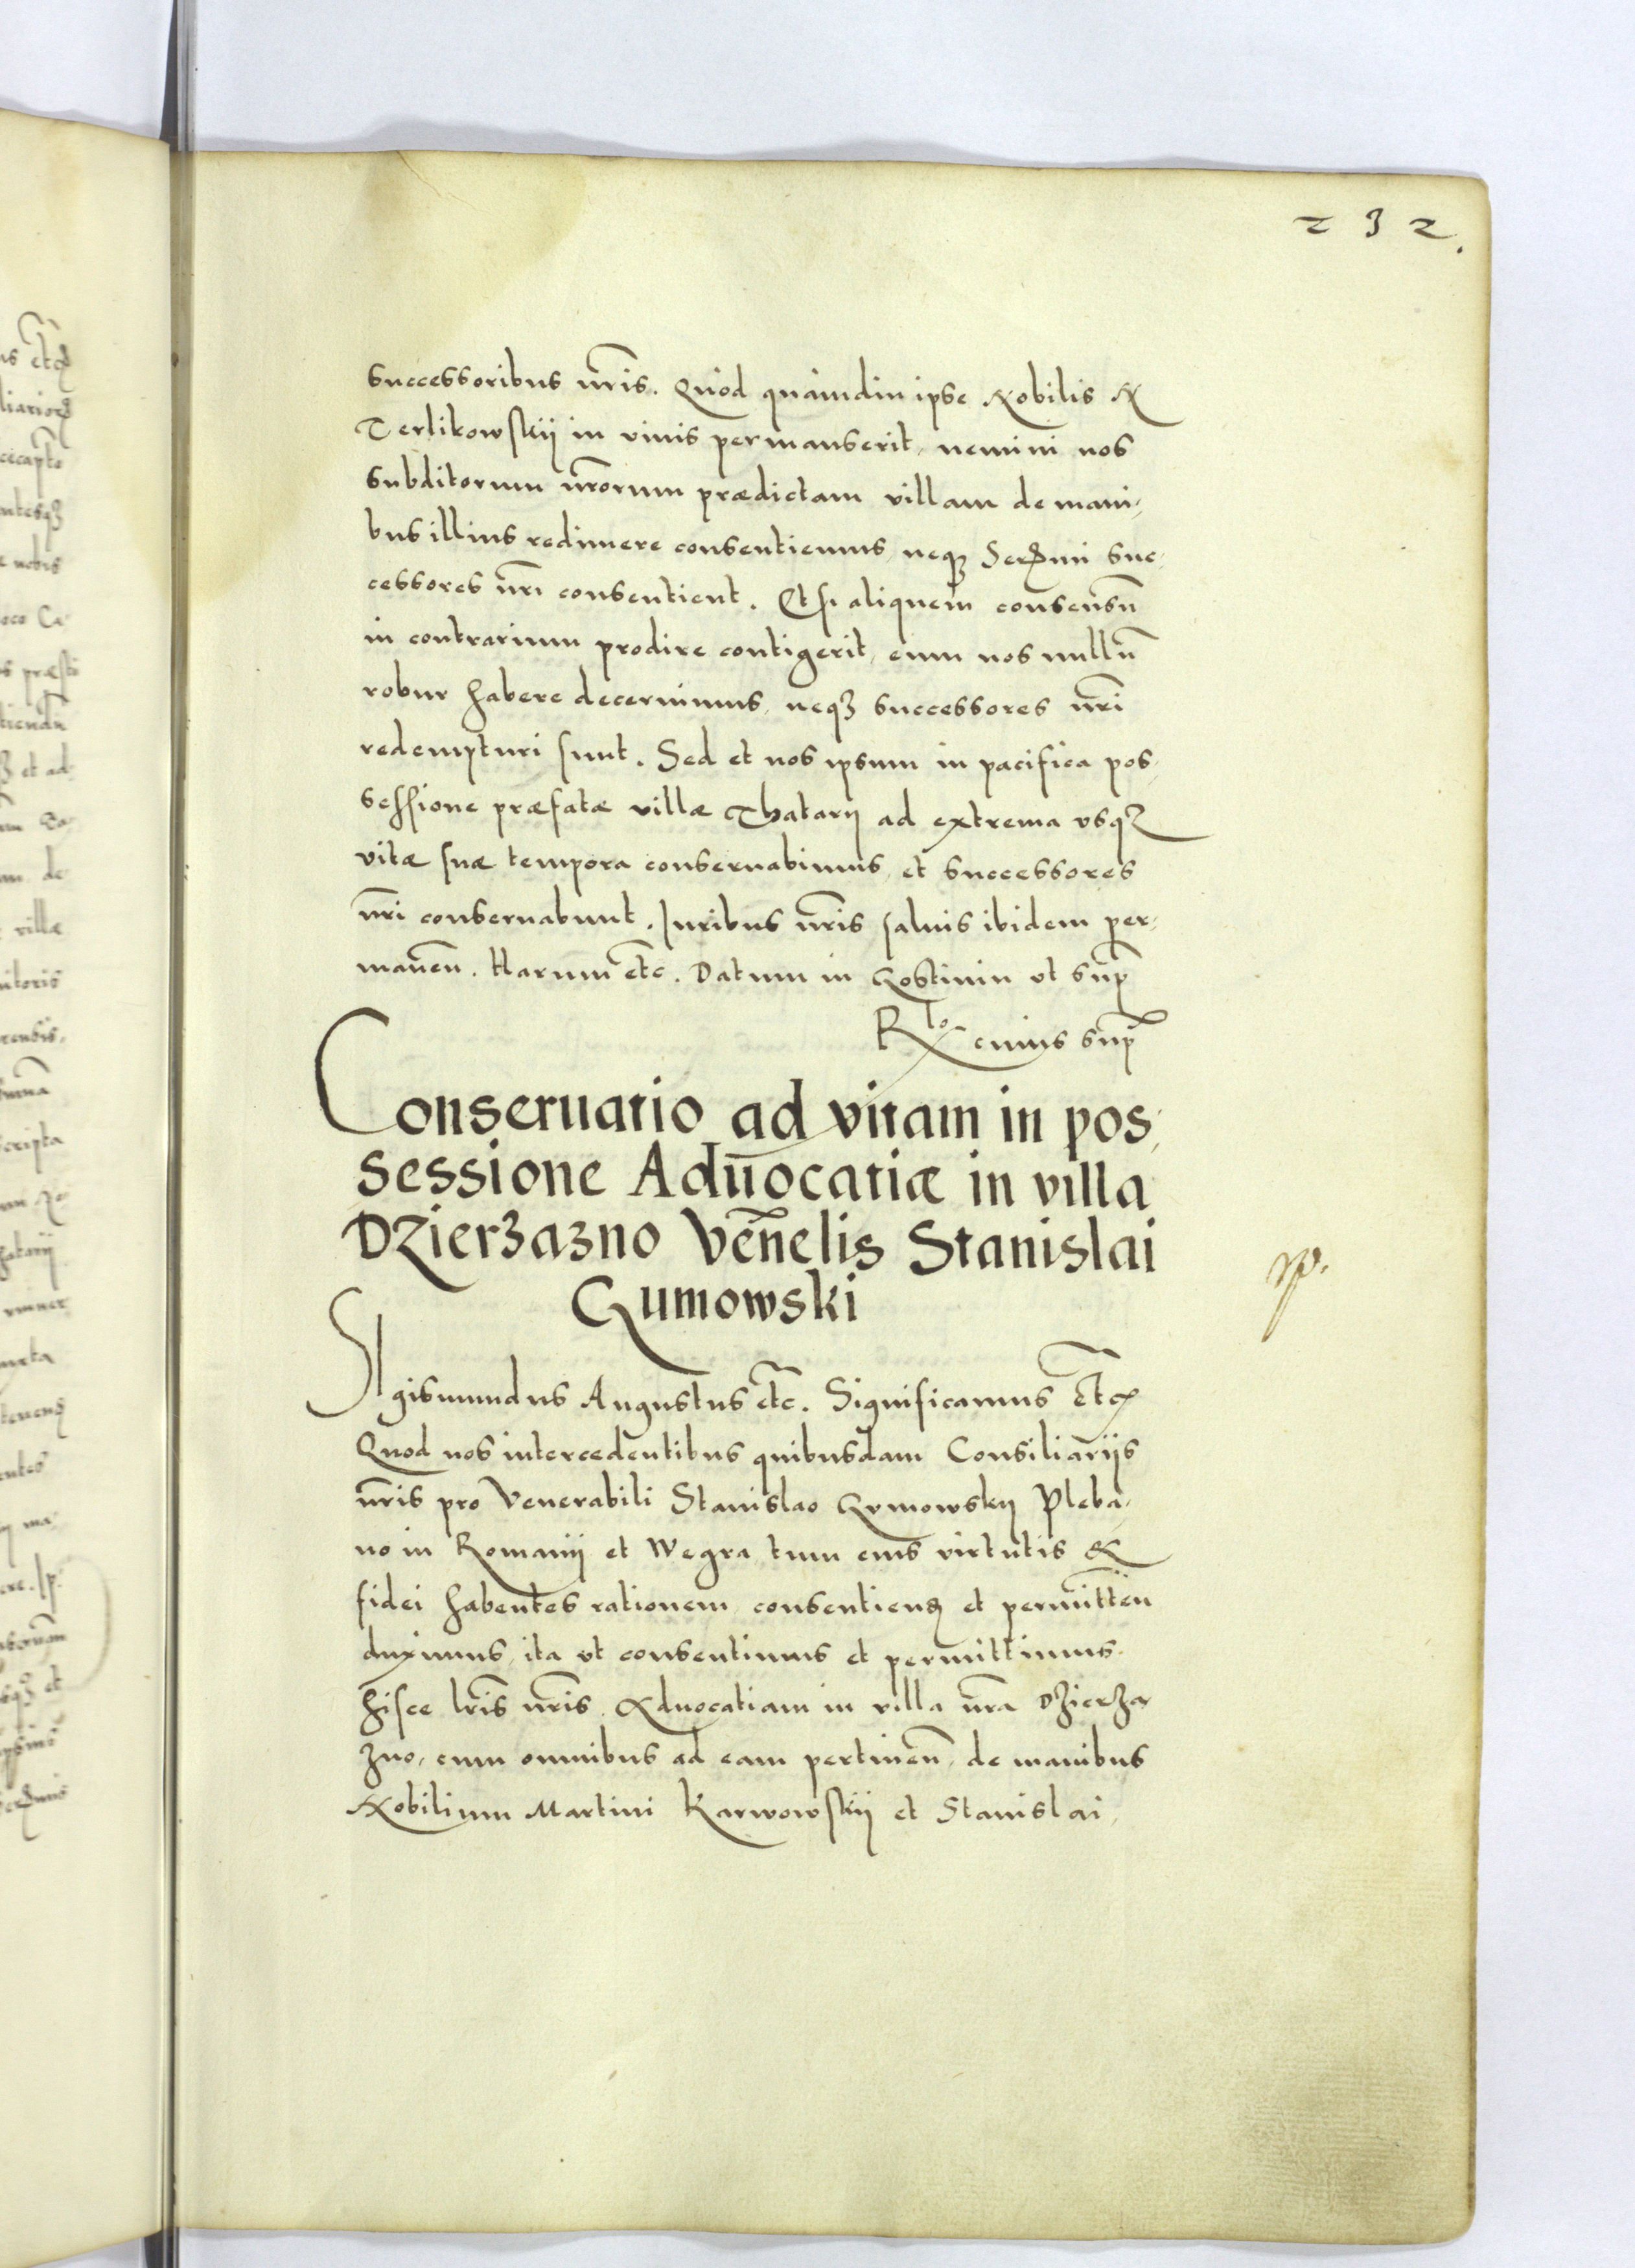 232.
successoribus nr̃is. Quod quamdiu ipse Nobilis N
Terlikowskij in viuis permanserit, nemini nos
subditorum nr̃orum prædictam villam de mani-
bus illius redimere consentiemus, neqꝫ Serẽmi suc-
cessores nr̃i consentient. Et si aliquem consensũ
in contrarium prodire contigerit, eum nos nullũ
robur habere decernimus, neqꝫ successores nr̃i
redempturi sunt. Sed et nos ipsum in pacifica pos-
sessione præfatæ villæ Thatarij ad extrema vsqꝫ
vitæ suæ tempora conseruabimus, et successores
nr̃i conseruabunt. Iuribus nr̃is saluis ibidem per-
maneñ. Harum etc. Datum in Gostinin vt sup̃
R^to cuius sup̃
Conseruatio ad vitam in pos-
sessione Aduocatiæ in villa
Dzierzazno Veñelis Stanislai
Gumowski
rp.
SIgismundus Augustus etc. Significamus etc
Quod nos intercedentibus quibusdam Consiliarijs
nr̃is pro Venerabili Stanislao Gumowskij Pleba-
no in Romanij et Wegra, tum eius virtutis &
fidei habentes rationem, consentienđ et permitteñ
duximus, ita vt consentimus et permittimus
hisce lr̃is nr̃is. Aduocatiam in villa nr̃a Dzierza
zno, cum omnibus ad eam pertineñ, de manibus
Nobilium Martini Karwowskij et Stanislai,